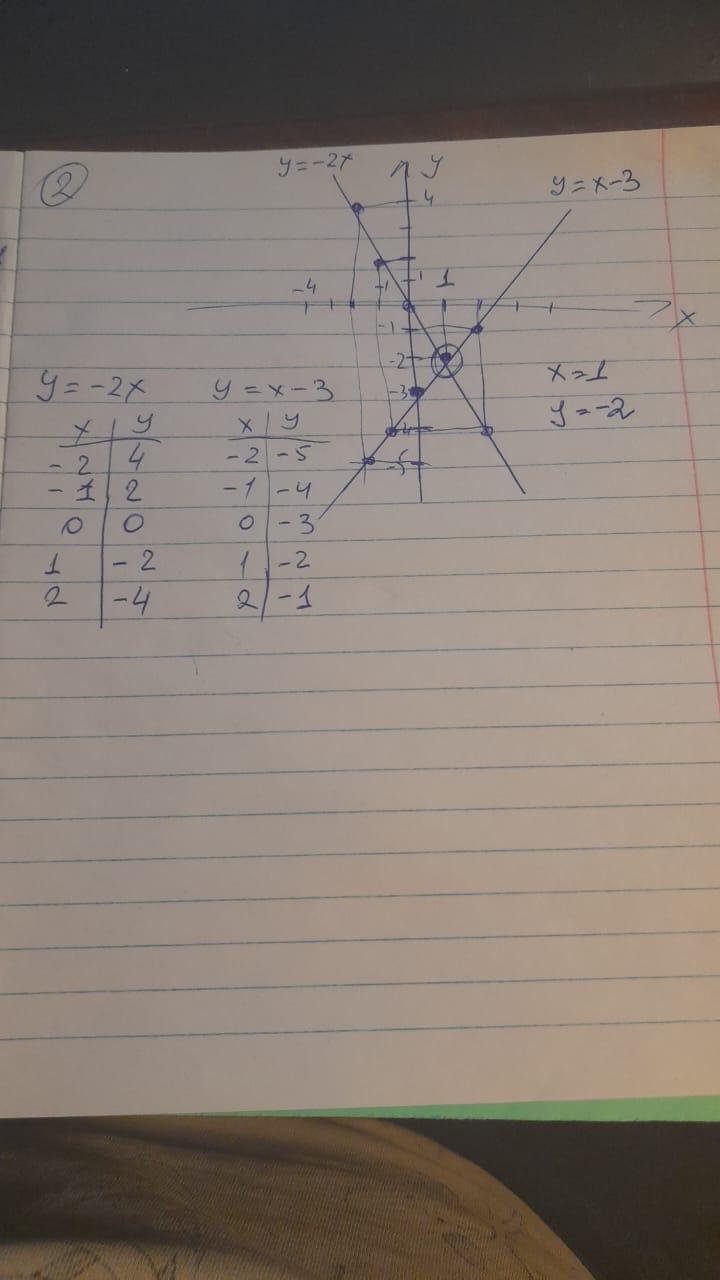 2
y=-2x
y
4
y=x-3
-4
-1
1
1
x
-1
-2
-3
-4
-5
x=1
y=-2
y=-2x
x | y
-2 | 4
-1 | 2
0 | 0
1 | -2
2 | -4
y=x-3
x | y
-2 | -5
-1 | -4
0 | -3
1 | -2
2 | -1